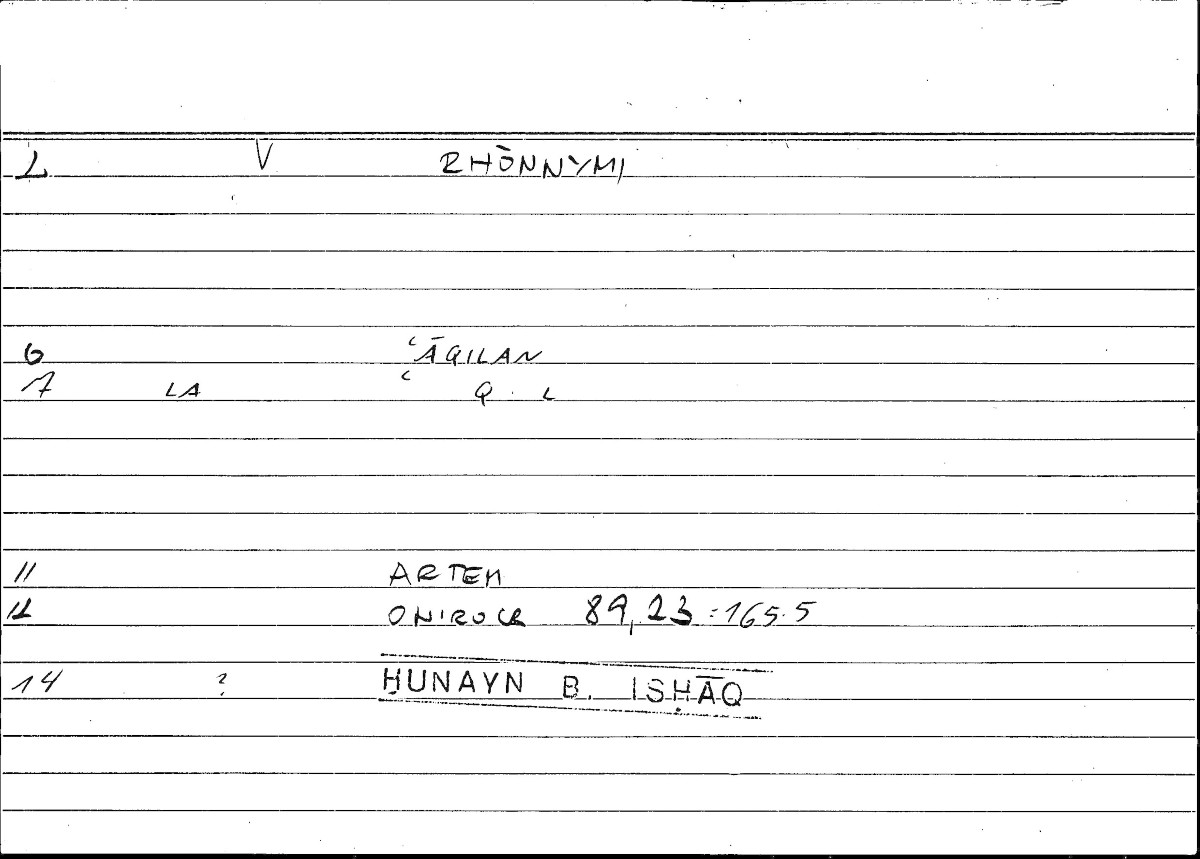 1 V RHŌNNYMI
6 ʿĀQILAN
7 LA ʿ Q . L
11 ARTEM
12 ONIROCR 89,23 = 165.5
14 ? ḤUNAYN B. ISḤĀQ